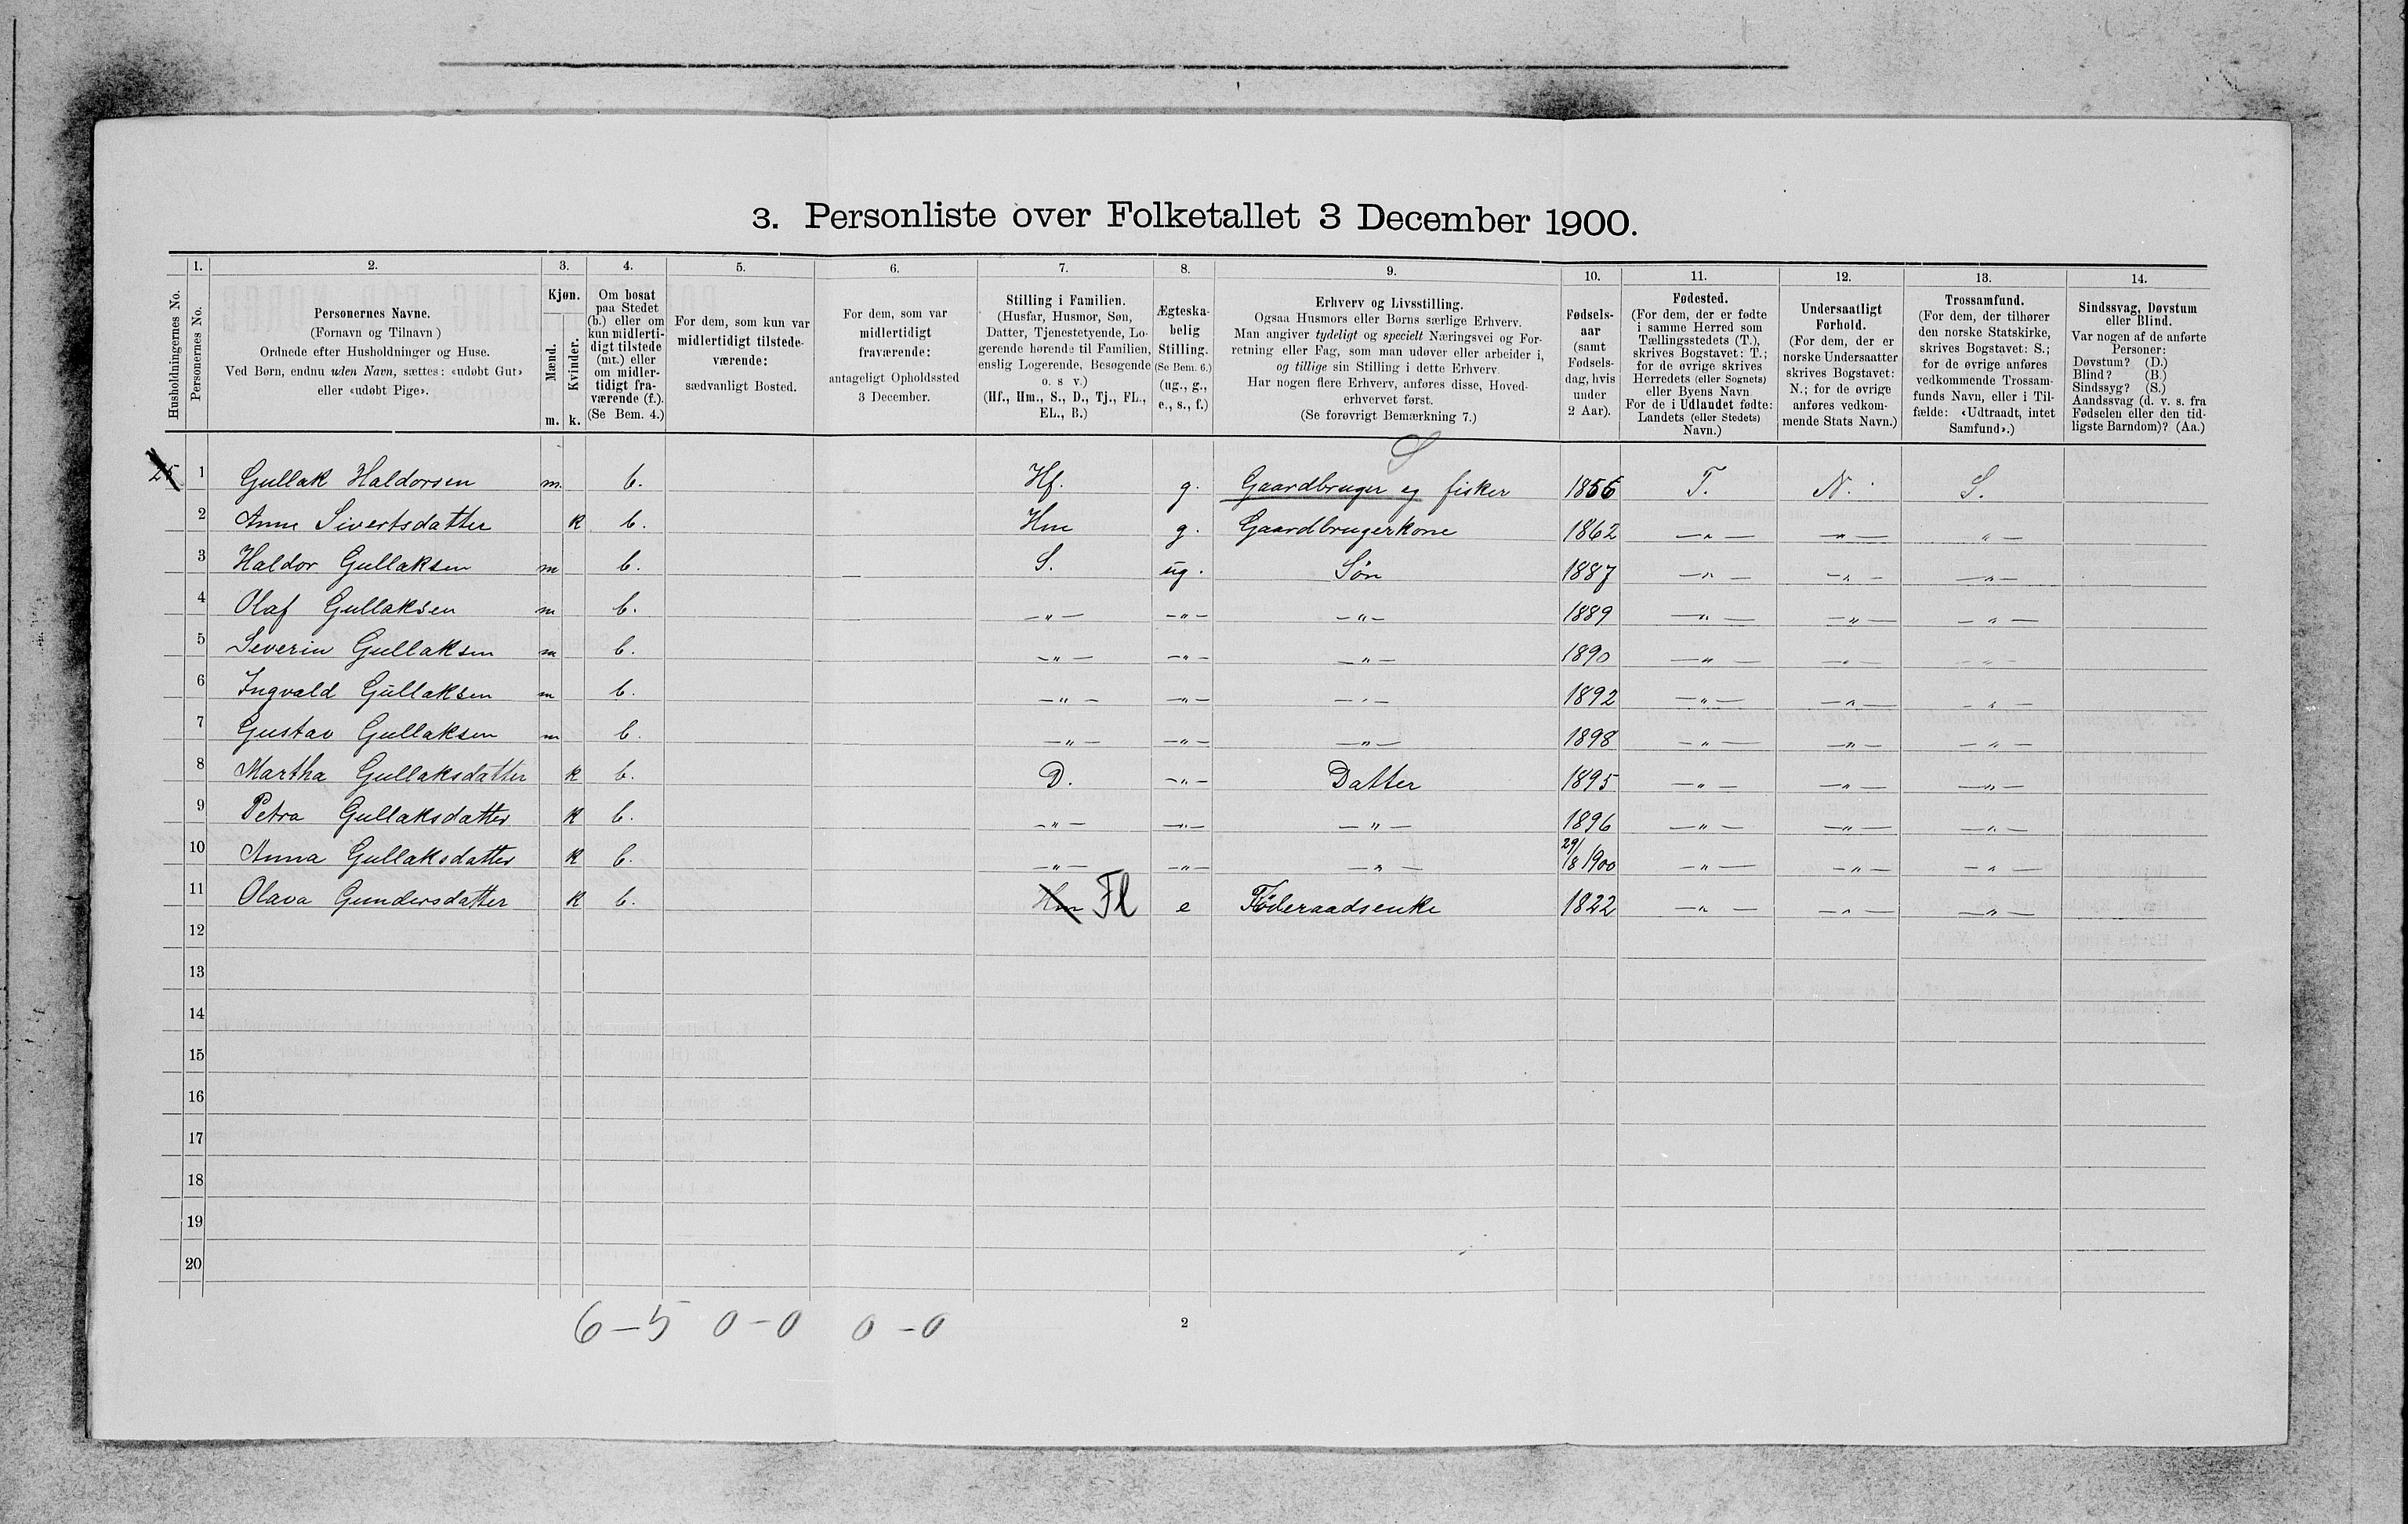 3. Personliste over Folketallet 3 December 1900.
1. 2. 3. 4. 5. 6. 7. 8. 9. 10. 11. 12. 13. 14.
Husholdningernes No.
Personernes No.
Personernes Navne.
(Fornavn og Tilnavn)
Ordnede efter Husholdninger og Huse.
Ved Børn, endnu uden Navn, sættes: «udøbt Gut»
eller «udøbt Pige».
Kjøn.
Mænd.
Kvinder.
m. k.
Om bosat
paa Stedet
(b.) eller om
kun midlerti-
digt tilstede
(mt.) eller
om midler-
tidigt fra-
værende (f.).
(Se Bem. 4.)
For dem, som kun var
midlertidigt tilstede-
værende:
sædvanligt Bosted.
For dem, som var
midlertidigt
fraværende:
antageligt Opholdssted
3 December.
Stilling i Familien.
(Husfar, Husmor, Søn,
Datter, Tjenestetyende, Lo-
gerende hørende til Familien,
enslig Logerende, Besøgende
o. s v.)
(Hf., Hm., S., D., Tj., FL.,
EL., B.)
Ægteska-
belig
Stilling.
(Se Bem. 6.)
(ug., g.,
e., s., f.)
Erhverv og Livsstilling.
Ogsaa Husmors eller Børns særlige Erhverv.
Man angiver tydeligt og specielt Næringsvei og For-
retning eller Fag, som man udøver eller arbeider i,
og tillige sin Stilling i dette Erhverv.
Har nogen flere Erhverv, anføres disse, Hoved-
erhvervet først.
(Se forøvrigt Bemærkning 7.)
Fødsels-
aar
(samt
Fødsels-
dag, hvis
under
2 Aar).
Fødested.
(For dem, der er fødte
i samme Herred som
Tællingsstedets (T.),
skrives Bogstavet: T.;
for de øvrige skrives
Herredets (eller Sognets)
eller Byens Navn
For de i Udlandet fødte:
Landets (eller Stedets)
Navn.)
Undersaatligt
Forhold.
(For dem, der er
norske Undersaatter
skrives Bogstavet:
N.; for de øvrige
anføres vedkom-
mende Stats Navn.)
Trossamfund.
(For dem, der tilhører
den norske Statskirke,
skrives Bogstavet: S.;
for de øvrige anføres
vedkommende Trossam-
funds Navn, eller i Til-
fælde: «Udtraadt, intet
Samfund».)
Sindssvag, Døvstum
eller Blind.
Var nogen af de anførte
Personer:
Døvstum? (D.)
Blind? (B.)
Sindssyg? (S.)
Aandssvag (d. v. s. fra
Fødselen eller den tid-
ligste Barndom)? (Aa.)
S
1 Gullak Haldorsen m. b. Hf. g. Gaardbruger og fisker 1856 T. N. S.
2 Anne Sivertsdatter k b. Hm g. Gaardbrugerkone 1862 —„— —„— „—
3 Haldor Gullaksen m b. S. ug. Søn 1887 —„— —„— —„—
4 Olaf Gullaksen m b. —„— —„— —„— 1889 —„— —„— —„—
5 Severin Gullaksen m b. —„— —„— —„— 1890 —„— —„— —„—
6 Ingvald Gullaksen m b. —„— —„— —„— 1892 —„— —„— —„—
7 Gustav Gullaksen m b. —„— —„— —„— 1898 —„— —„— —„—
8 Martha Gullaksdatter k b. D. —„— Datter 1895 —„— —„— —„—
9 Petra Gullaksdatter k b. —„— —„— —„— 1896 —„— —„— —„—
10 Anna Gullaksdatter k b. —„— —„— —„— 29/8 1900 —„— —„— —„—
11 Olava Gundersdatter k b. Hm Fl e Føderaadsenke 1822 —„— —„— —„—
12
13
14
15
16
17
18
19
20
6 – 5 0 – 0 0 – 0
2